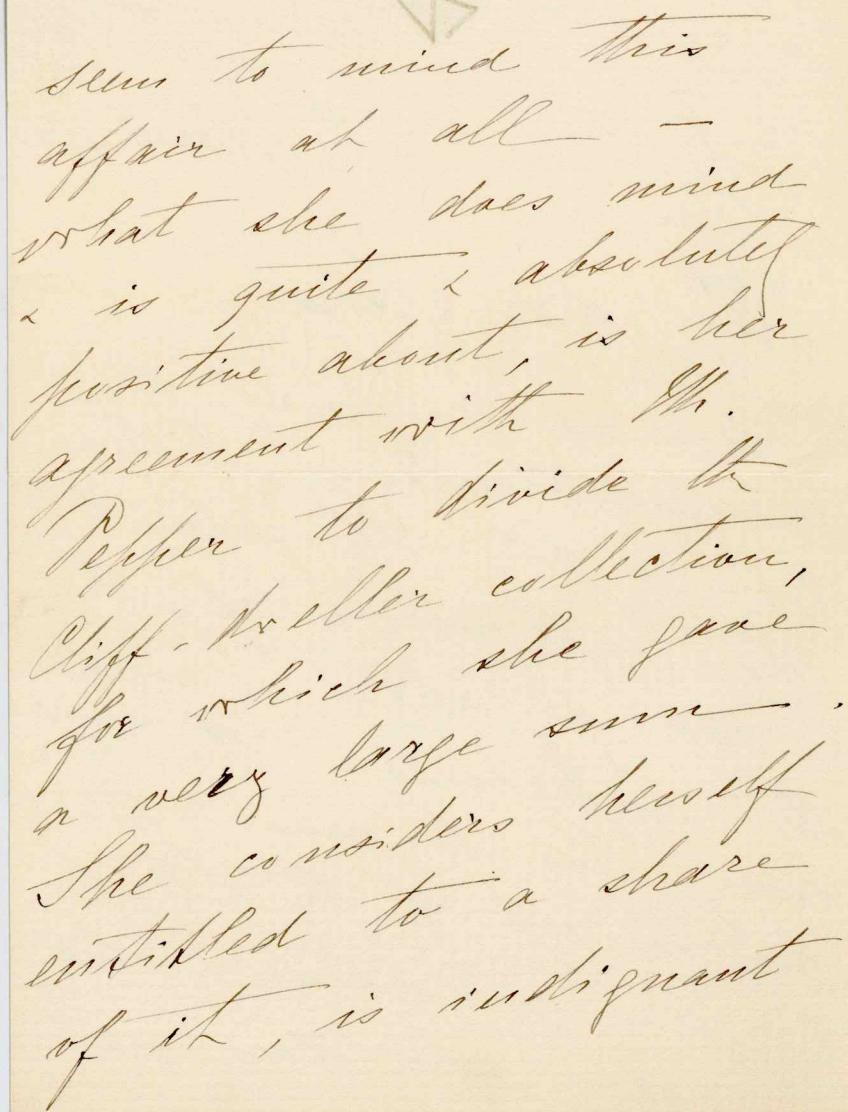 seem to mind this
affair at all —
what she does mind
& is quite & absolutely
positive about, is her
agreement with Mr.
Pepper to divide the
Cliff-dweller collection,
for which she gave
a very large sum.
She considers herself
entitled to a share
of it, is indignant